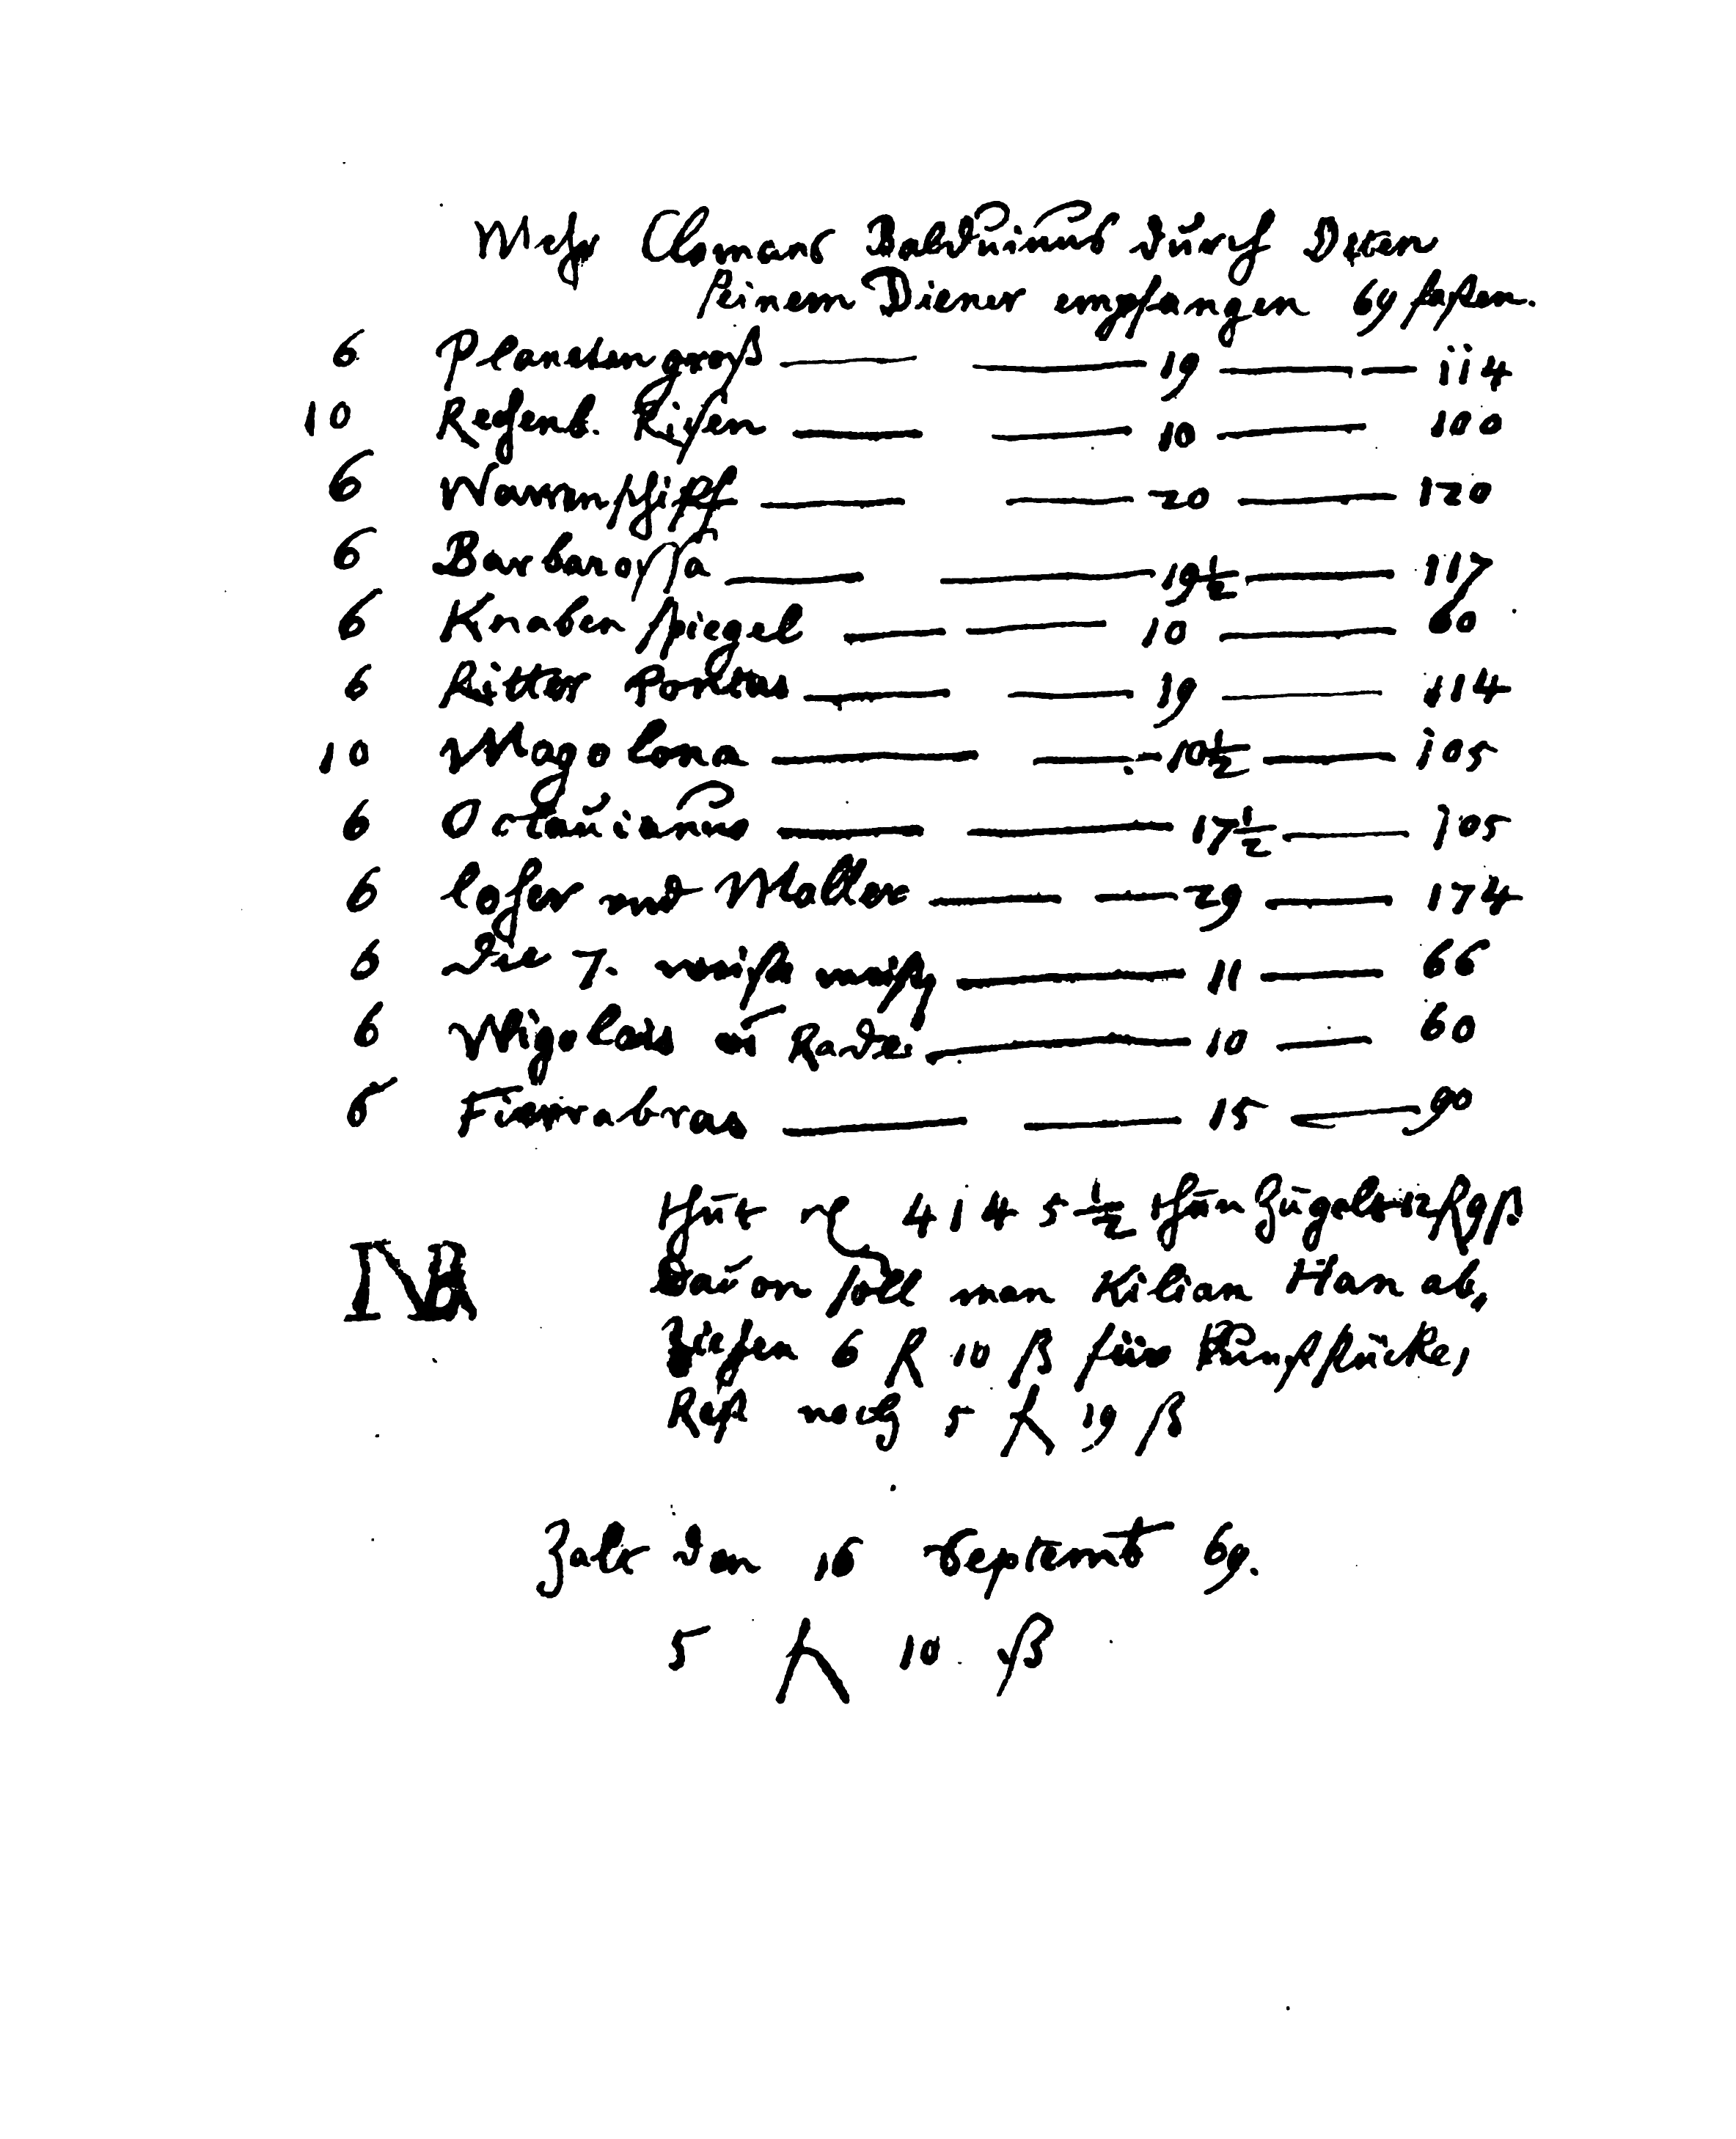 Mehr Clomans Balduinus durch
seinem Diener empfangen 69 fasten.
6 Planeten groß — — 19 — — 114
10 Regenb. Rißen — — 10 — 100
6 Narrnschiff — — 20 — 120
6 Barbarossa — — 19½ — 117
6 Knaben spiegel — — 10 — 60
6 Ritter Pontus — — 19 — 114
10 Magolona — — 10½ — 105
6 Octauianus — — 17½ — 105
6 Loher vnd Maller — — 29 — 174
6 Die 7. weise maister — 11 — 66
6 Wigolais vñ Rades — 10 — 60
6 Fierrabras — — 15 — 90
thut 4 1 4 5½ thun zugelt 12 fl 9 ß
NB
Dauon soll man Kilian Han ab,
Ziehen 6 fl 10 ß für Kunststücke,
Rest noch 5 fl 19 ß
Zalt den 16 Septemb 69.
5 fl 10 ß